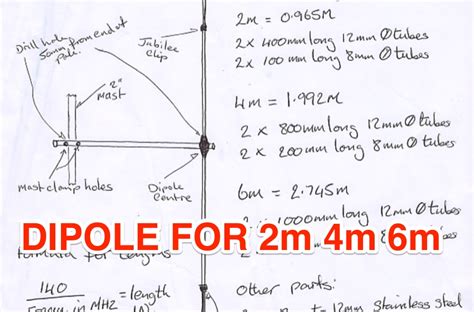 Drill hole
50mm from end of
pole.
Jubilee
Clip
2"
Mast
Mast clamp holes
Dipole
Centre
2m = 0.965M
2x 400mm long 12mm Ø tubes
2x 100mm long 8mm Ø tubes
4m = 1.992M
2 x 800mm long 12mm Ø tubes
2 x 200mm long 8mm Ø tubes
6m = 2.745M
1000mm long 12mm Ø tubes
8mm Ø tubes
DIPOLE FOR 2m 4m 6m
formula for lengths
140
in MHz
= length
Other parts:
12mm Stainless steel